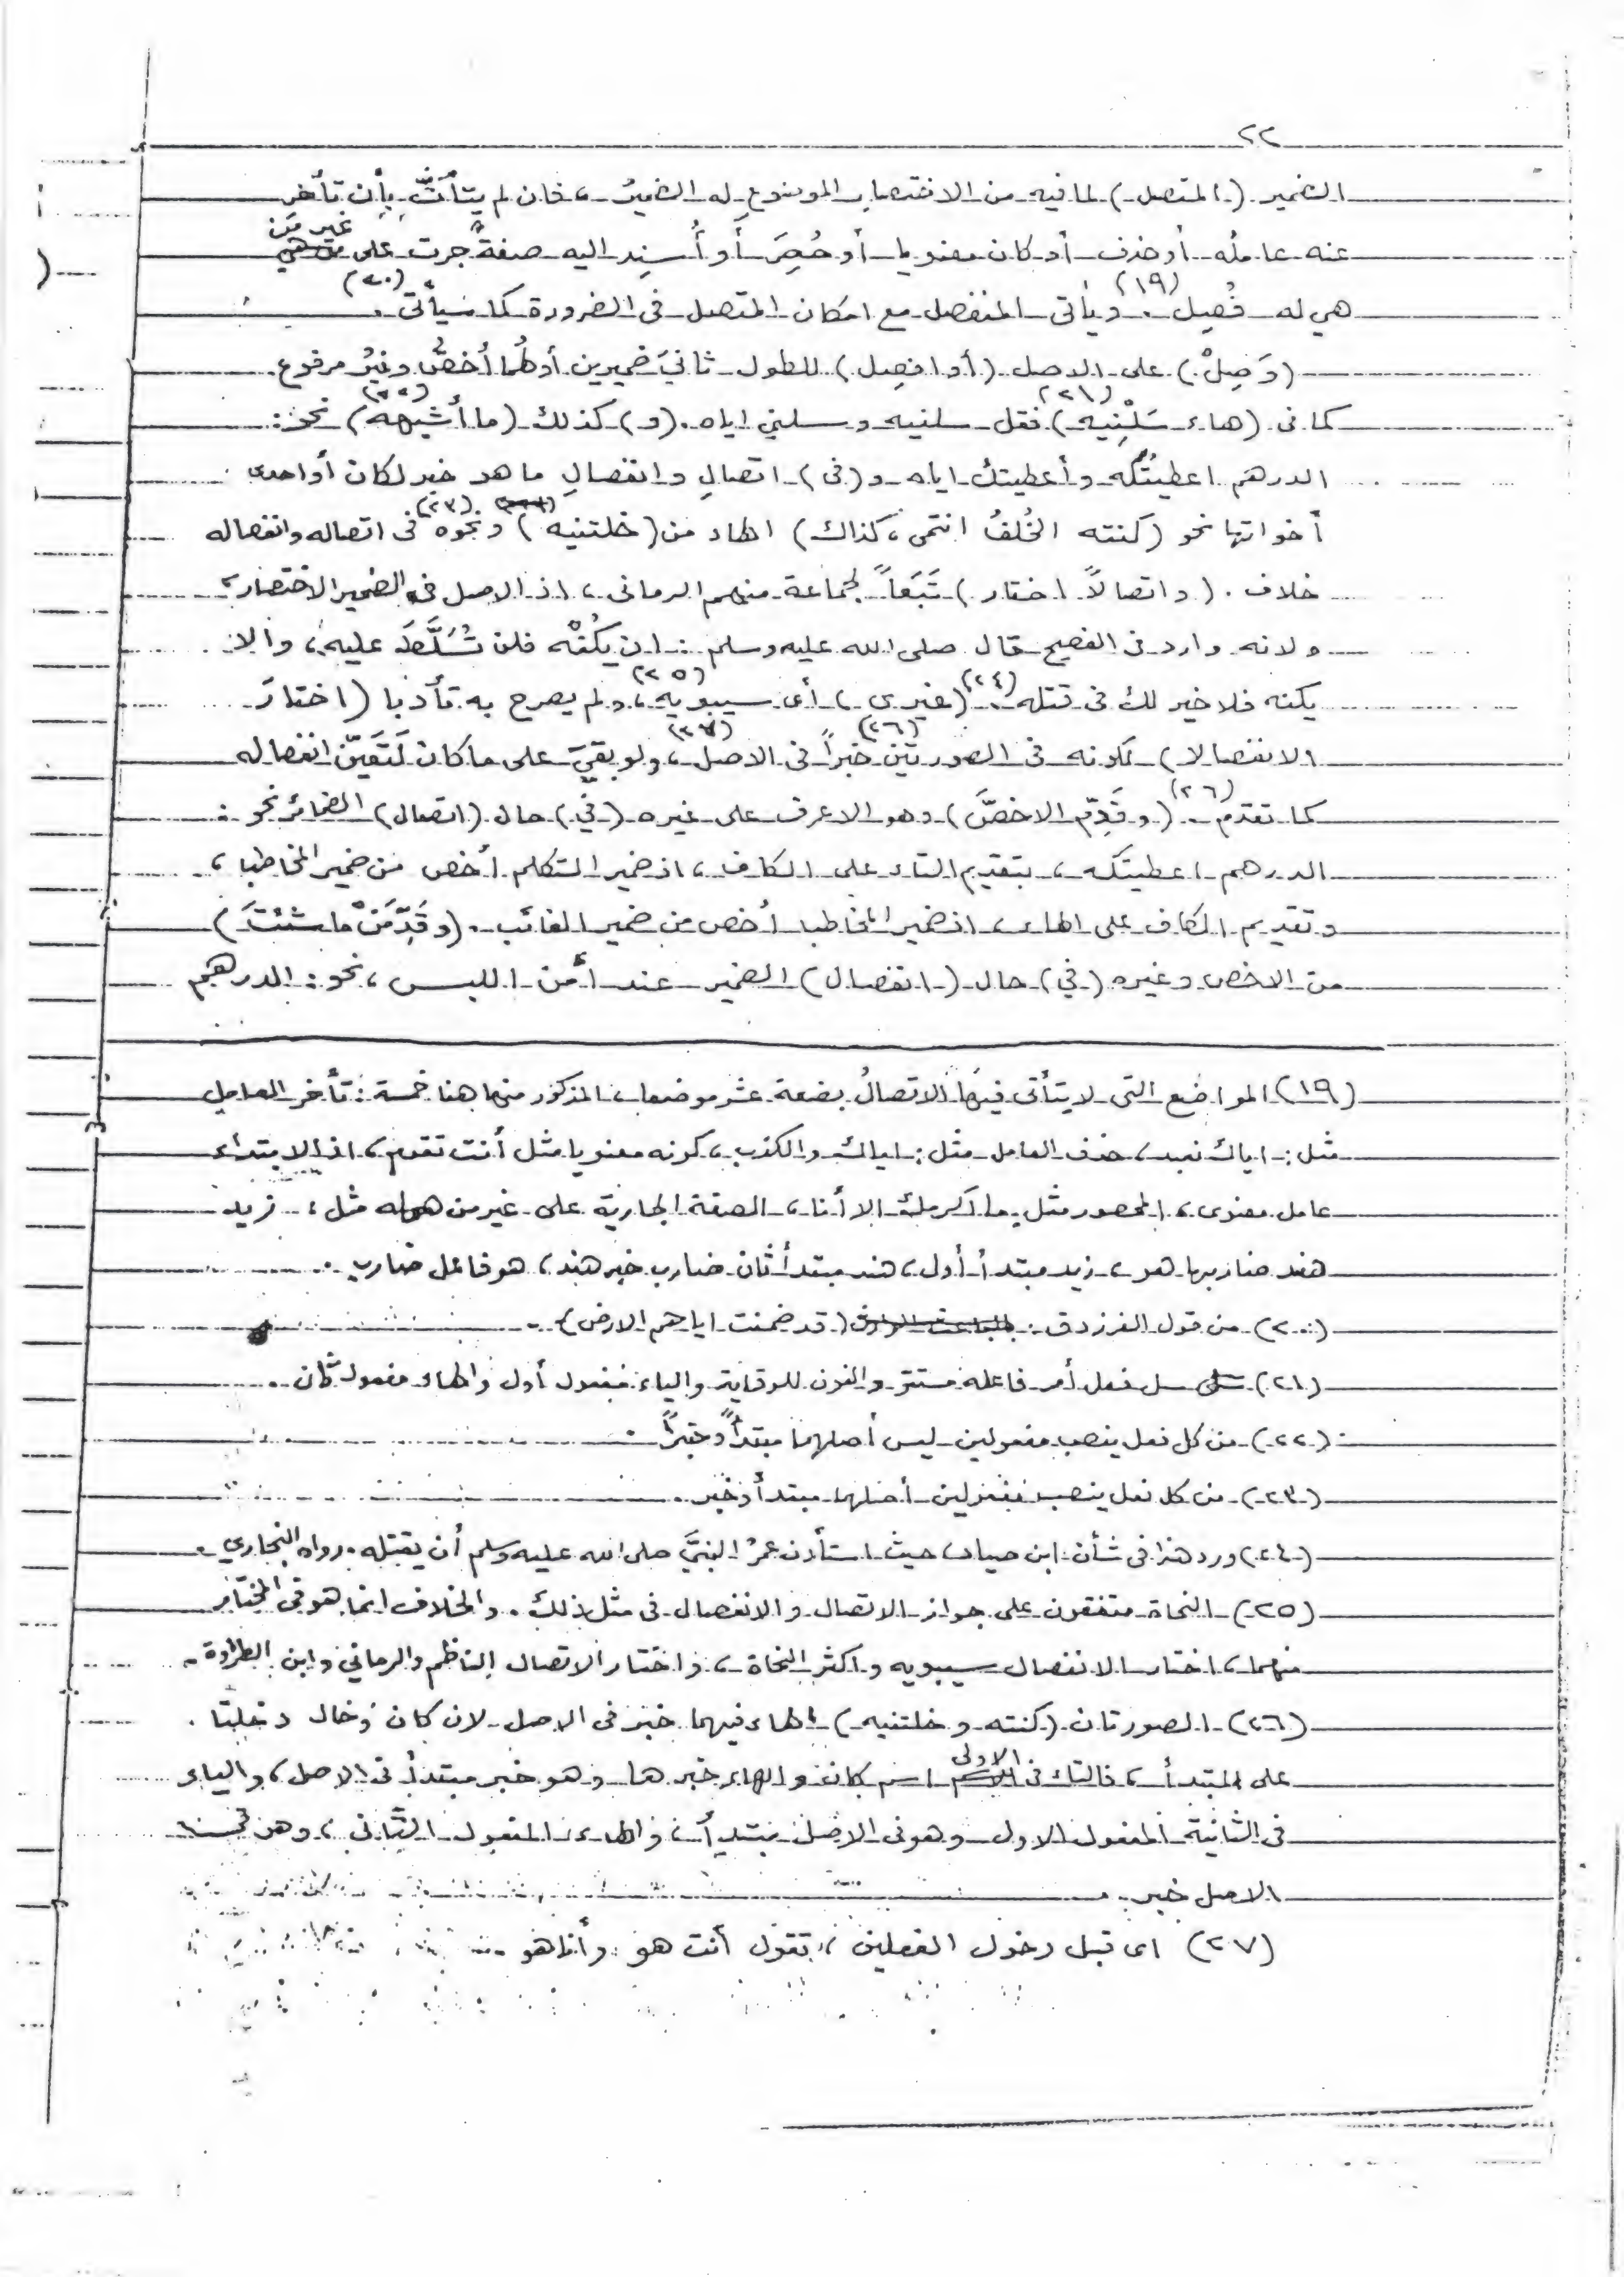 ٢٢
الضمير (المتصل) لما فيه من الاختصار الموضوع له الضميرُ، فان لم يتأتَّ بأن تأخر
عنه عامله أو حذف أو كان معنويا أو حُصِرَ أو أُسنِد اليه صفةٌ جرت على غير مَن
هي له فُصِل (١٩). ويأتى المنفصل مع امكان المتصل فى الضرورة كما سيأتى (٢٠).
(وَصِلْ) على الاصل (أو افصِل) للطول ثانيَ ضميرين أولهُما أخصُّ وغيرُ مرفوع
كما فى (هاء سَلْنِيه) (٢١) فقل سلنيه وسلني اياه. (و) كذلك (ما أشبهه) (٢٢) نحو:
الدرهم اعطيتُكه وأعطيتك اياه و (فى) اتصالِ وانفصالِ ما هو خبر لكان أو احدى
أخواتها نحو (كنته الخُلفُ انتمى، كذاك) الهاء من (خلتنيه) ونحوه (٢٣) فى اتصاله وانفصاله
خلاف. (واتصالاً اختار) تَبَعاً لجماعة منهم الرمانى، اذ الاصل فى الضمير الاختصار،
ولانه وارد فى الفصيح قال صلى الله عليه وسلم: ان يكُنْه فلن تُسَلَّطَ عليه، والا
يكنه فلا خير لك فى قتله (٢٤). (غيرى) أى سيبويه (٢٥)، ولم يصرح به تأدبا (اختارَ
الانفصالا) لكونه فى الصورتين (٢٦) خبراً فى الاصل، ولو بقيَ على ما كان (٢٧) لَتَعَيّنَ انفصاله
كما تقدم (٢٦). (وقَدِّم الاخصَّ) وهو الاعرف على غيره (في) حال (اتصال) الضمائر نحو:
الدرهم اعطيتكه، بتقديم التاء على الكاف، اذ ضمير المتكلم أخص من ضمير المخاطب،
وتقديم الكاف على الهاء، اذ ضمير المخاطب أخص من ضمير الغائب. (وقَدِّمَنْ ما شئتَ)
من الاخص وغيره (في) حال (انفصال) الضمير عند أمن اللبس، نحو: الدرهم
(١٩) المواضع التى لا يتأتى فيها الاتصالُ بضعة عشر موضعا، المذكور منها هنا خمسة: تأخر العامل
مثل: اياك نعبد، حذف العامل مثل: اياك والكذب، كونه معنويا مثل أنت تقوم، اذ الابتداء
عامل معنوى، المحصور مثل ما اكرمك الا أنا، الصفة الجارية على غير من هى له مثل: زيد
هند ضاربها هو، زيد مبتدأ أول، هند مبتدأ ثان ضارب خبر هند، هو فاعل ضارب.
(٢٠) من قول الفرزدق: (قد ضمنت اياهم الارض).
(٢١) سل فعل أمر فاعله مستتر والنون للوقاية والياء مفعول أول والهاء مفعول ثان.
(٢٢) من كل فعل ينصب مفعولين ليس أصلهما مبتدأً وخبراً.
(٢٣) من كل فعل ينصب مفعولين أصلهما مبتدأ وخبر.
(٢٤) ورد هذا فى شأن ابن صياد، حيث استأذن عمرُ النبيَّ صلى الله عليه وسلم أن يقتله. رواه البخاري.
(٢٥) النحاة متفقون على جواز الاتصال والانفصال فى مثل ذلك. والخلاف انما هو فى المختار
منهما، اختار الانفصال سيبويه واكثر النحاة، واختار الاتصال الناظم والرماني وابن الطراوة.
(٢٦) الصورتان (كنته وخلتنيه) الهاء فيهما خبر فى الاصل لان كان وخال دخلتا
على المبتدأ، فالتاء فى الاولى اسم كان والهاء خبرها وهو خبر مبتدأ فى الاصل، والياء
فى الثانية المفعول الاول وهو فى الاصل مبتدأ، والهاء المفعول الثانى، وهى فى
الاصل خبر.
(٢٧) اى قبل دخول الفعلين، تقول أنت هو وأنا هو